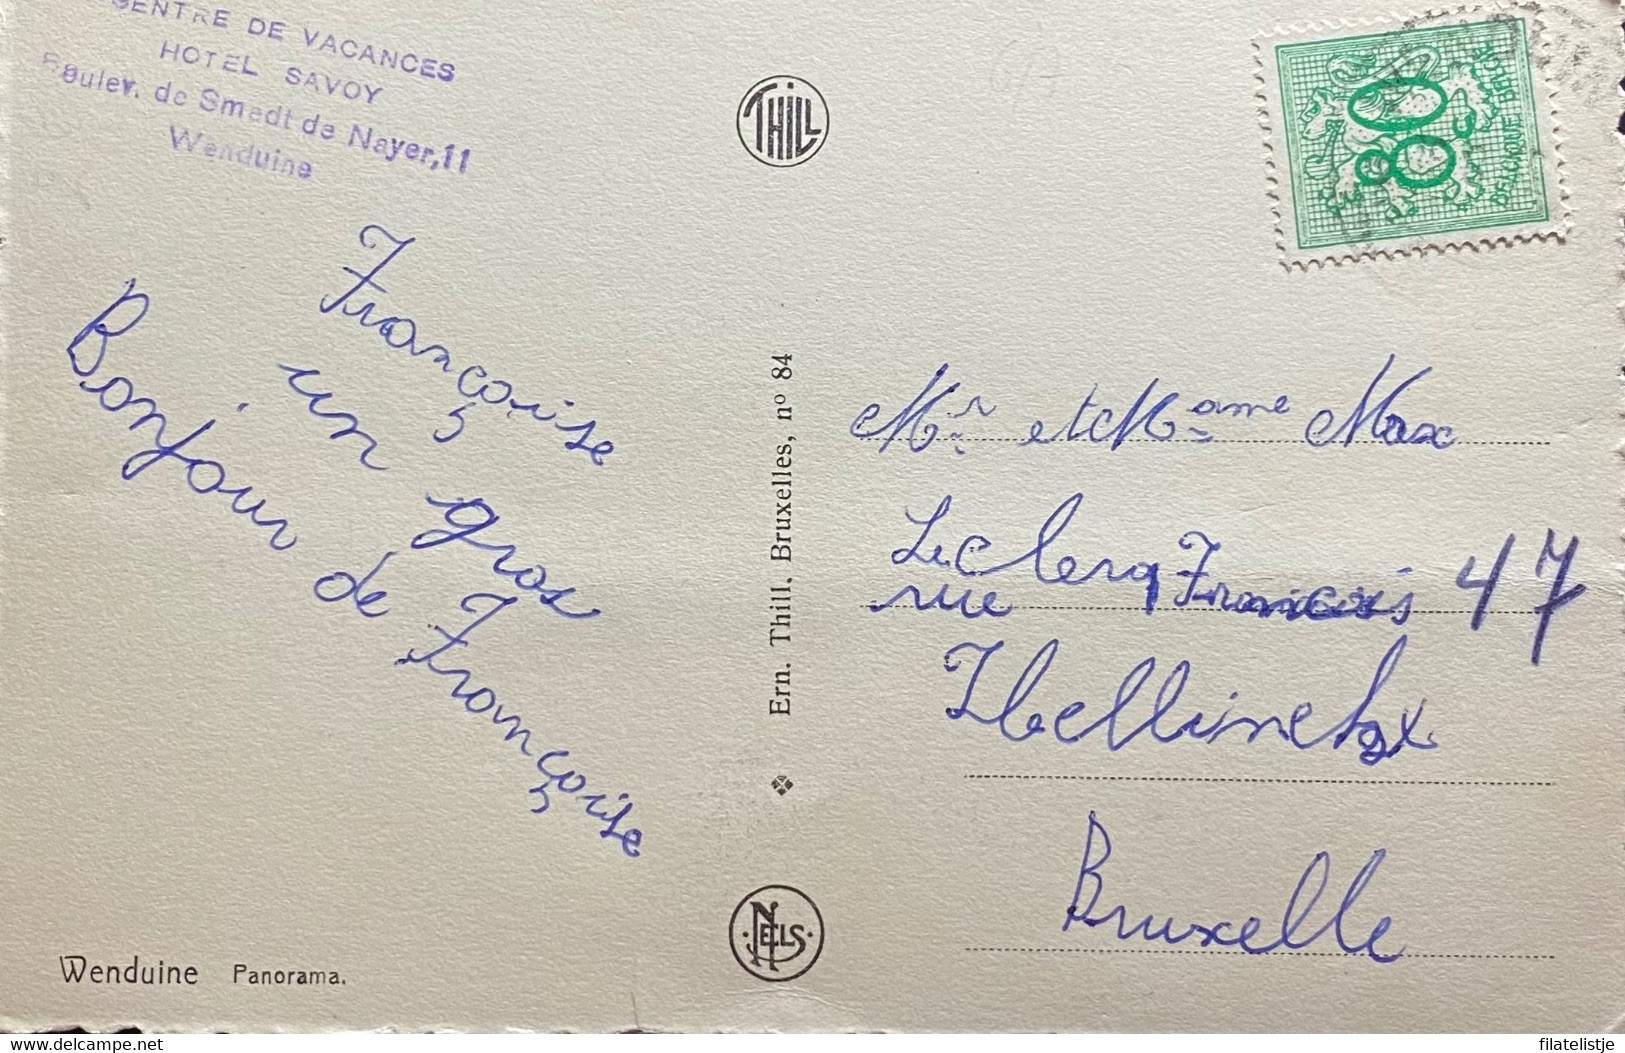 CENTRE DE VACANCES
HOTEL SAVOY
Boulev. de Smedt de Nayer, 11
Wenduine
Françoise
un
gros
Bonjour
de Françoise
Wenduine Panorama.
THILL
Ern. Thill, Bruxelles, nº 84
NELS
80c
BELGIQUE BELGIË
Mr et Mame Max
Leclercq
rue François 47
Bruxelle
delcampe.net
filatelistje